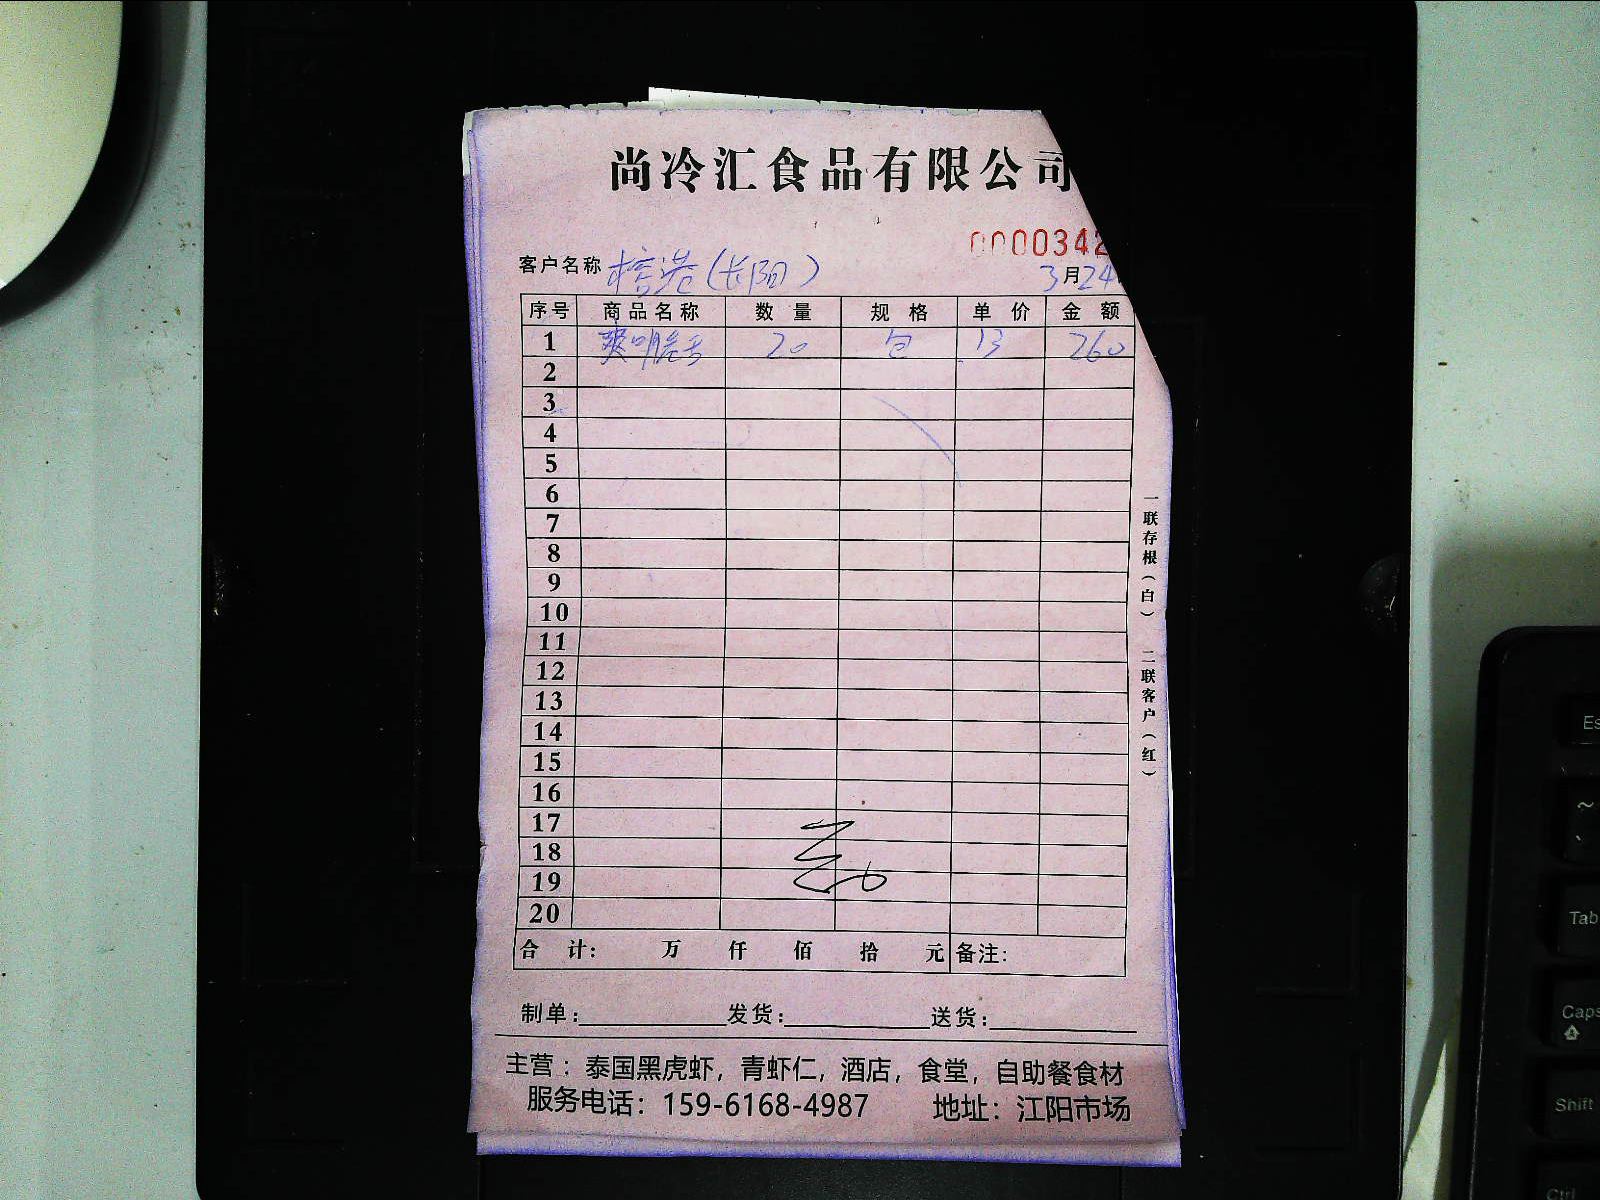 尚冷汇食品有限公司
000034
客户名称 榕港(长阳) 3月24
序号 商品名称 数量 规格 单价 金额
1 爽明 20 包 13 260
2
3
4
5
6
7
8
9
10
11
12
13
14
15
16
17
18
19
20
合计: 万 仟 佰 拾 元 备注:
制单: 发货: 送货:
主营:泰国黑虎虾,青虾仁,酒店,食堂,自助餐食材
服务电话:159-6168-4987 地址:江阳市场
一联存根(白) 二联客户(红)
Es
~
Tab
Caps
Shift
Ctrl